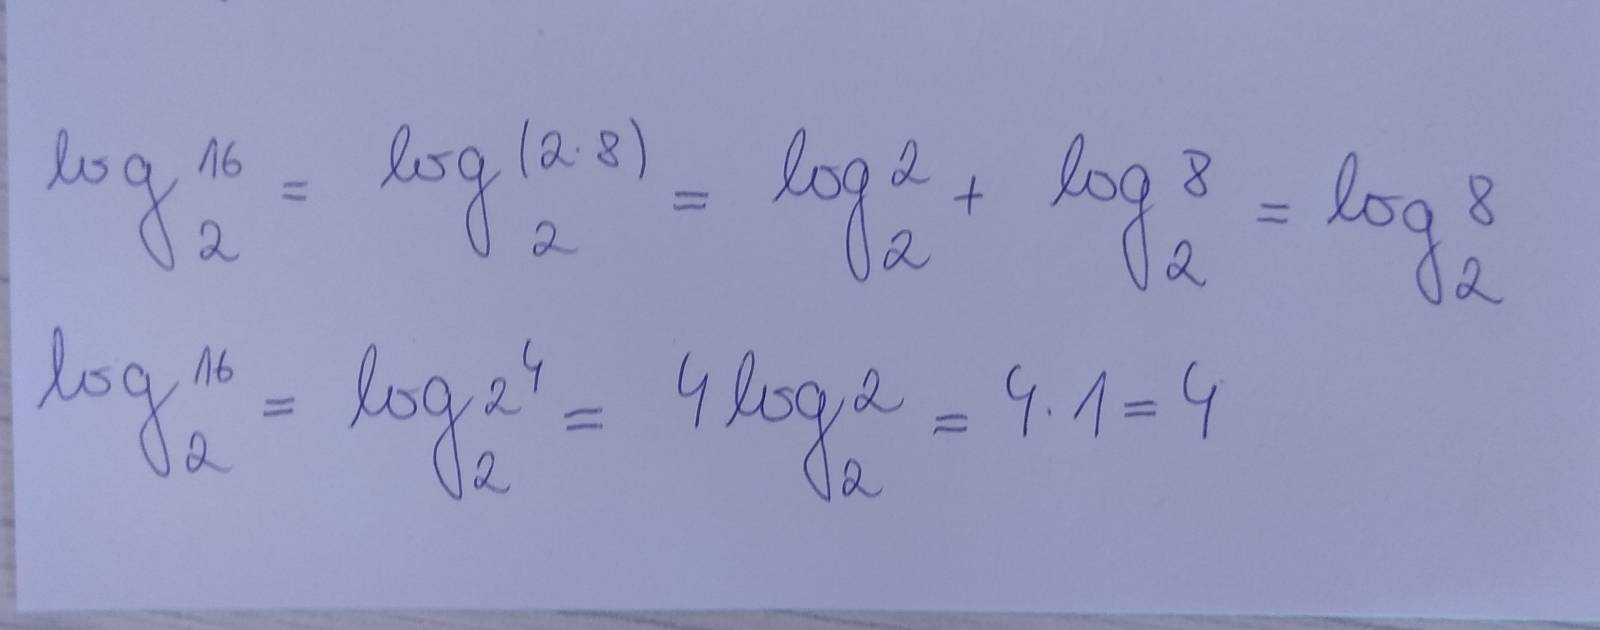 log₂ 16 = log₂ (2·8) = log₂ 2 + log₂ 8 = log₂ 8
log₂ 16 = log₂ 2⁴ = 4 log₂ 2 = 4·1 = 4